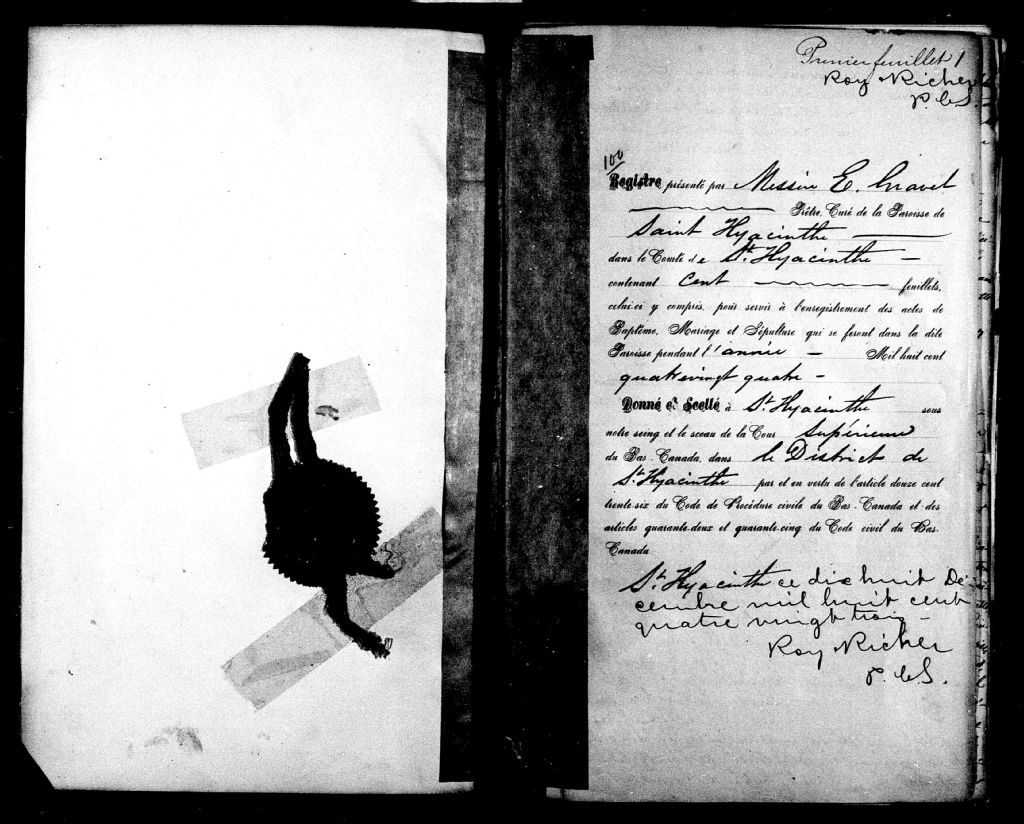 Premier feuillet 1
Roy & Richer
P. C. S.
100
Registre présenté par Messire E. Gravel
Prêtre, Curé de la Paroisse de
Saint Hyacinthe
dans le Comté de St. Hyacinthe –
contenant Cent feuillets,
celui-ci y compris, pour servir à l'enregistrement des actes de
Baptême, Mariage et Sépulture qui se feront dans la dite
Paroisse pendant l'année – Mil huit cent
quatrevingt quatre –
Donné et Scellé à St. Hyacinthe sous
notre seing et le sceau de la Cour Supérieure
du Bas-Canada, dans le District de
St. Hyacinthe par et en vertu de l'article douze cent
trente-six du Code de Procédure civile du Bas-Canada et des
articles quarante-deux et quarante-cinq du Code civil du Bas-
Canada
St. Hyacinthe ce dix huit Dé-
cembre mil huit cent
quatre vingt trois –
Roy & Richer
P. C. S.